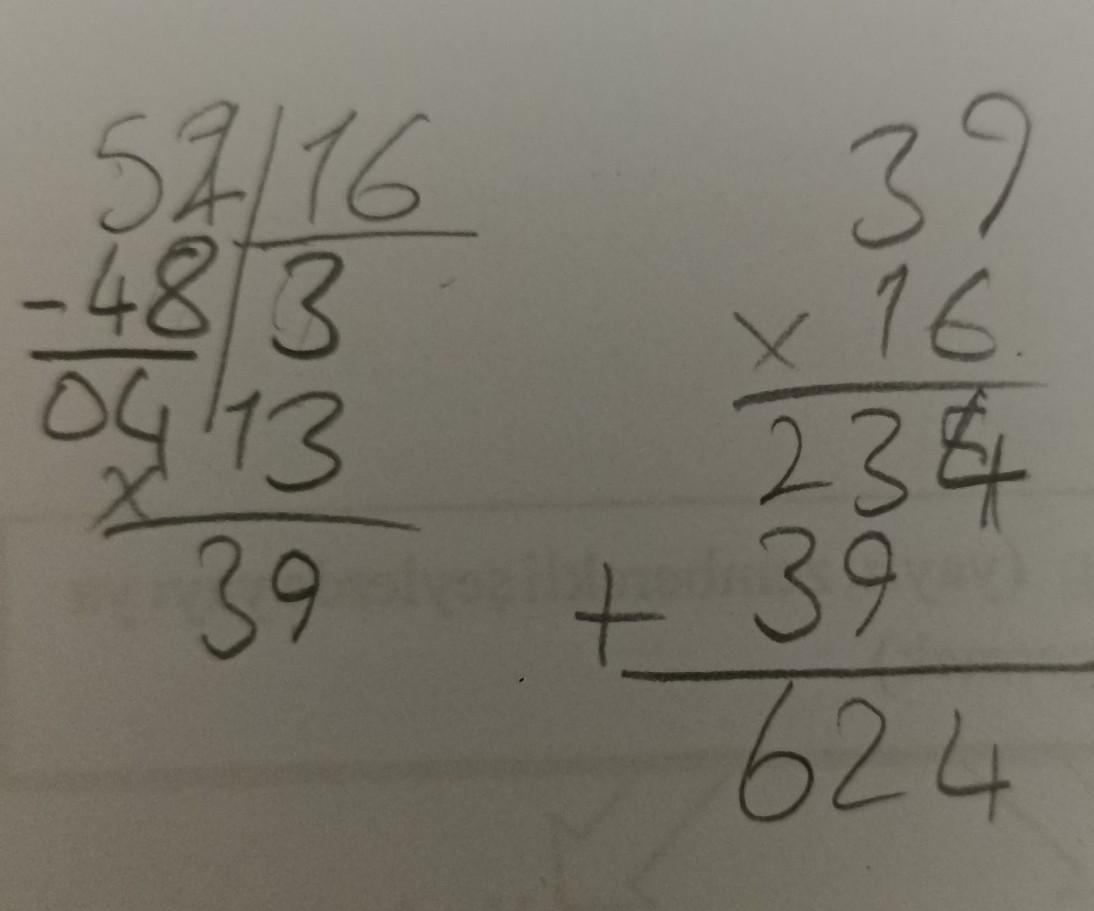 52 | 16
- 48 | 3
04
x 13
39
39
x 16
234
+ 39
624